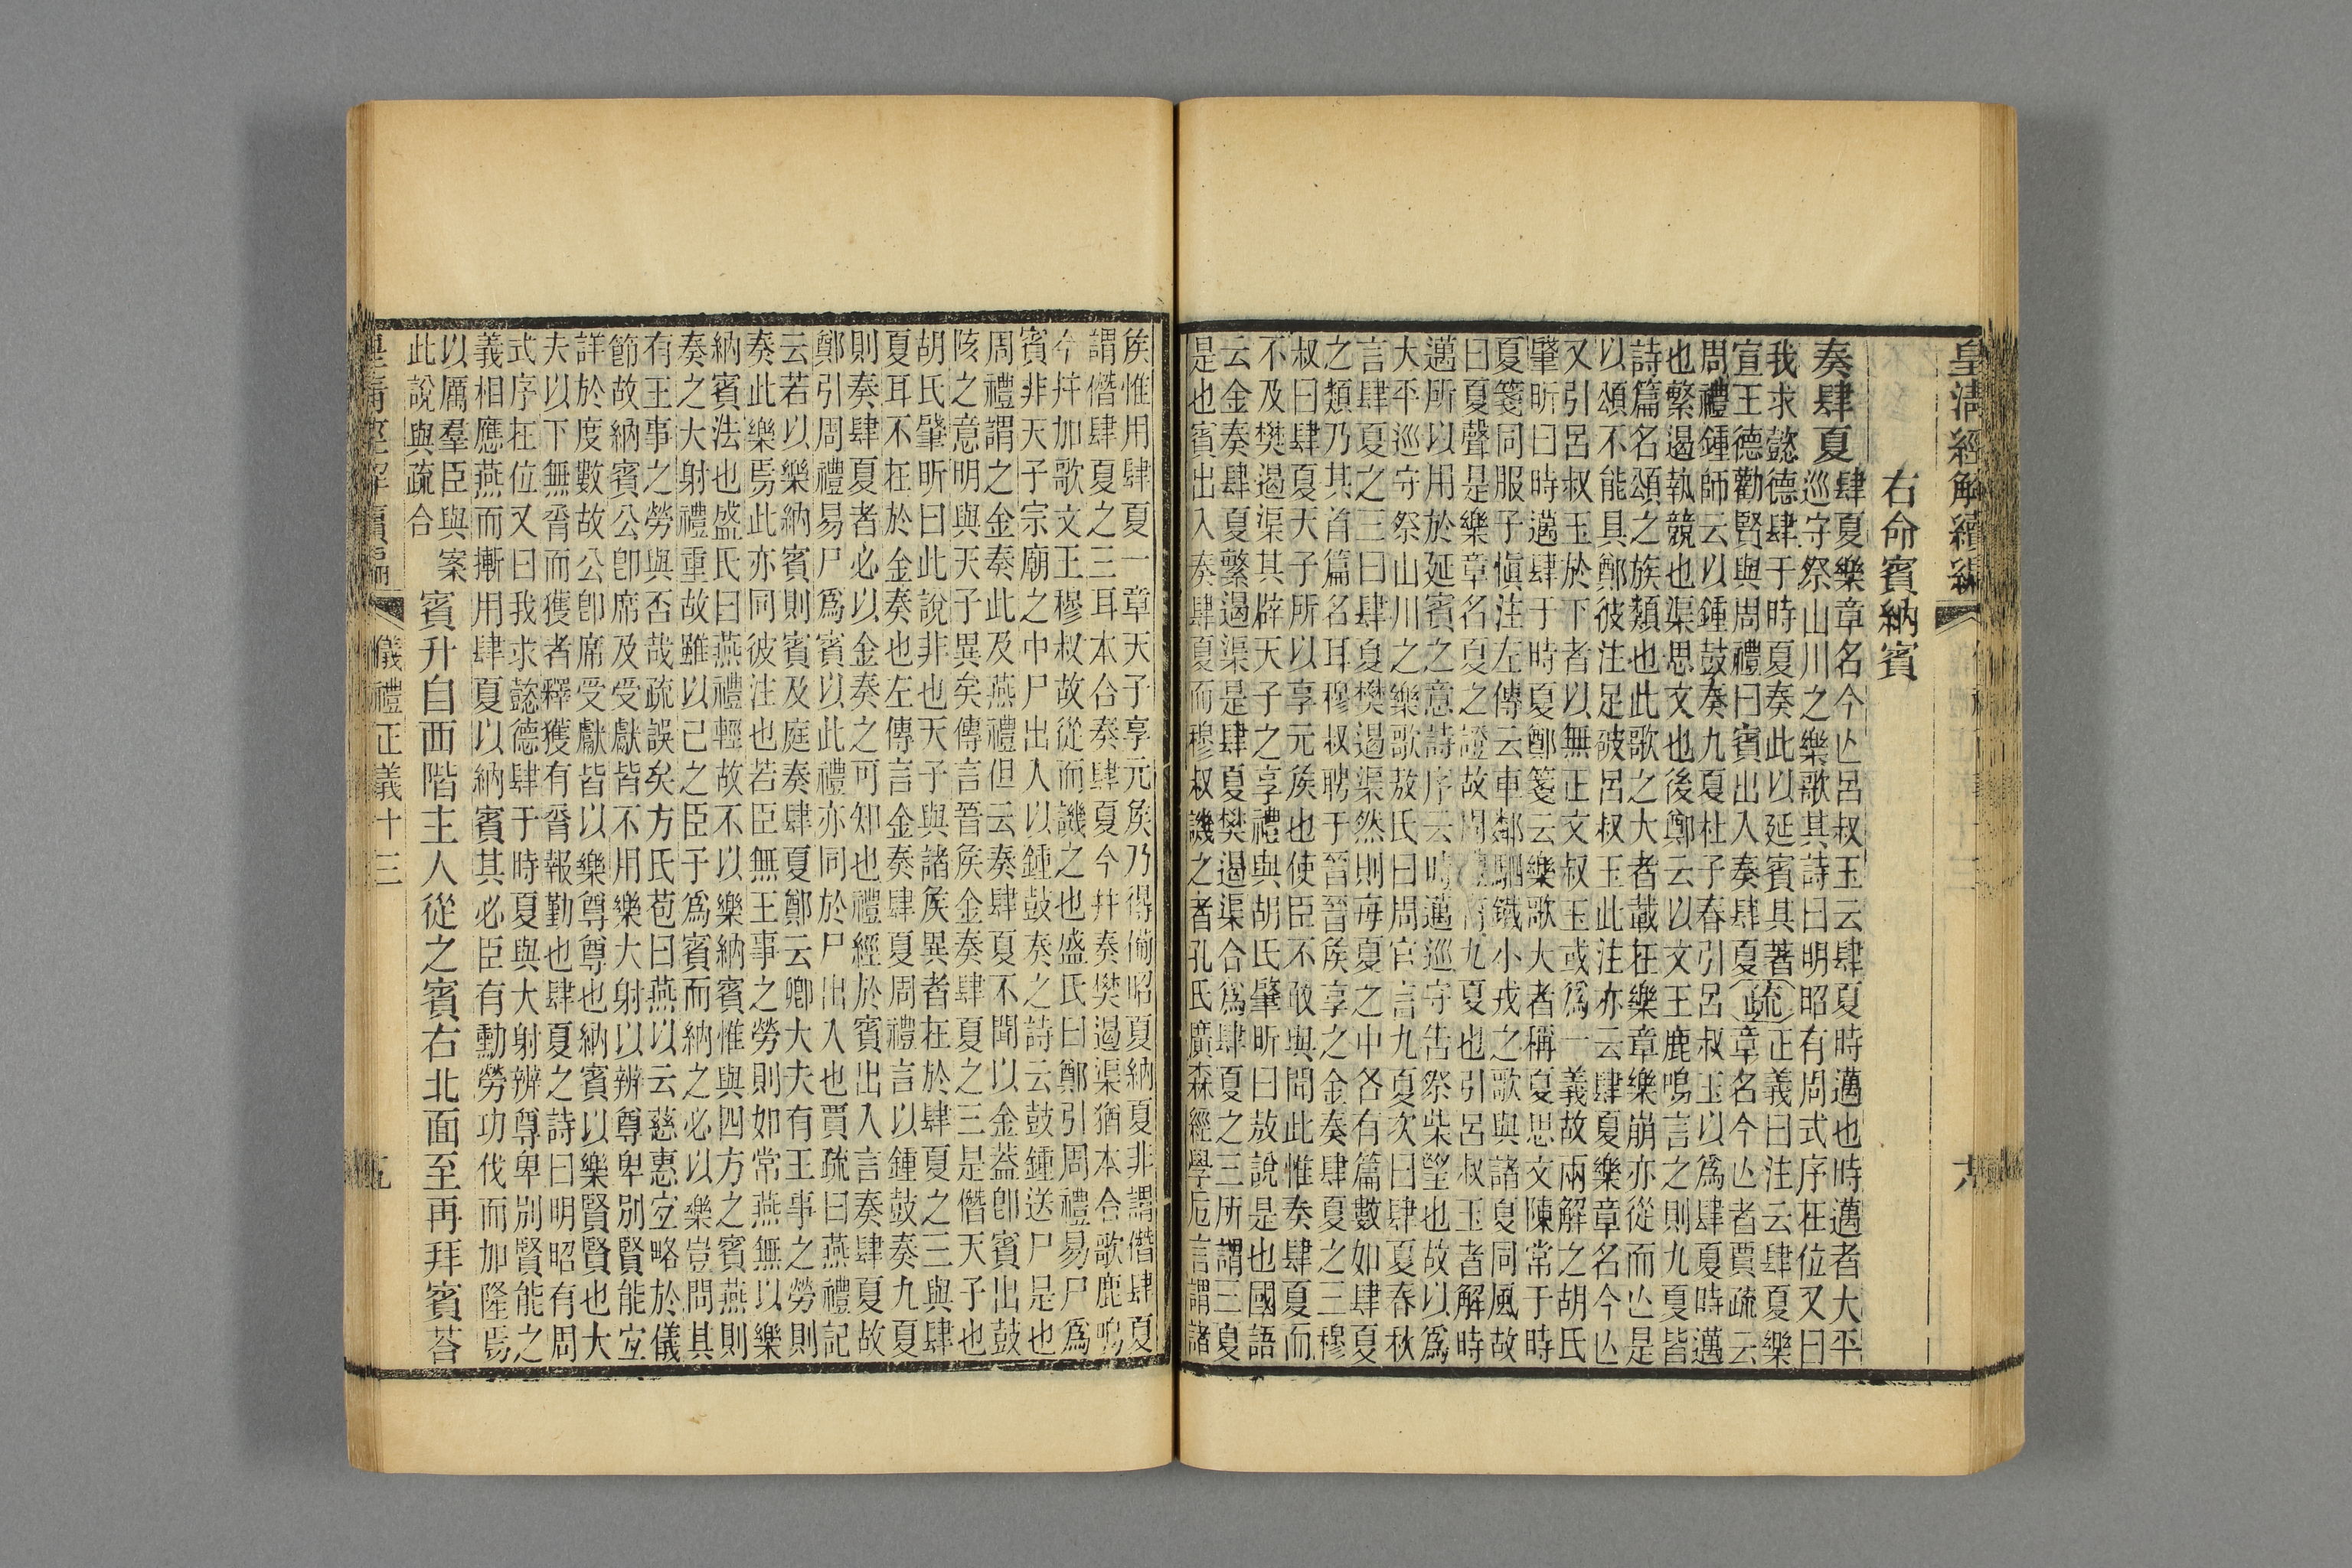 皇清經解續編
右命賓納賓
奏肆夏
肆夏樂章名今亾呂叔玉云肆夏時邁也時邁者大平
巡守祭山川之樂歌其詩曰明昭有周式序在位又曰
我求懿德肆于時夏奏此以延賓其著
宣王德勸賢與周禮曰賓出入奏肆夏
疏
正義曰注云肆夏樂
章名今亾者賈疏云
周禮鍾師云以鍾鼓奏九夏杜子春引呂叔玉以爲肆夏時邁
也繁遏執競也渠思文也後鄭云以文王鹿鳴言之則九夏皆
詩篇名頌之族類也此歌之大者載在樂章樂崩亦從而亾是
以頌不能具鄭彼注足破呂叔玉此注亦云肆夏樂章名今亾
又引呂叔玉於下者以無正文叔玉或爲一義故兩解之胡氏
肇昕曰時邁肆于時夏鄭箋云樂歌大者稱夏思文陳常于時
夏箋同服子愼注左傳云車鄰駟鐵小戎之歌與諸夏同風故
曰夏聲是樂章名夏之證故周禮有九夏也引呂叔玉者解時
邁所以用於延賓之意詩序云時邁巡守告祭柴望也故以爲
大平巡守祭山川之樂歌敖氏曰周官言九夏次曰肆夏春秋
言肆夏之三曰肆夏樊遏渠然則每夏之中各有篇數如肆夏
之類乃其首篇名耳穆叔聘于晉晉矦享之金奏肆夏之三穆
叔曰肆夏天子所以享元矦也使臣不敢與聞此惟奏肆夏而
不及樊遏渠其辟天子之享禮與胡氏肇昕曰敖說是也國語
云金奏肆夏繁遏渠是肆夏樊遏渠合爲肆夏之三所謂三夏
是也賓出入奏肆夏而穆叔譏之者孔氏廣森經學卮言謂諸
矦惟用肆夏一章天子享元矦乃得備昭夏納夏非謂僭肆夏
謂僭肆夏之三耳本合奏肆夏今幷奏樊遏渠猶本合歌鹿鳴
今幷加歌文王穆叔故從而譏之也盛氏曰鄭引周禮易尸爲
賓非天子宗廟之中尸出入以鍾鼓奏之詩云鼓鍾送尸是也
周禮謂之金奏此及燕禮但云奏肆夏不聞以金葢卽賓出鼓
陔之意明與天子異矣傳言晉矦金奏肆夏之三是僭天子也
胡氏肇昕曰此說非也天子與諸矦異者在於肆夏之三與肆
夏耳不在於金奏也左傳言金奏肆夏周禮言以鍾鼓奏九夏
則奏肆夏者必以金奏之可知也禮經於賓出入言奏肆夏故
鄭引周禮易尸爲賓以此禮亦同於尸出入也賈疏曰燕禮記
云若以樂納賓則賓及庭奏肆夏鄭云卿大夫有王事之勞則
奏此樂焉此亦同彼注也若臣無王事之勞則如常燕無以樂
納賓法也盛氏曰燕禮輕故不以樂納賓惟與四方之賓燕則
奏之大射禮重故雖以己之臣子爲賓而納之必以樂豈問其
有王事之勞與否哉疏誤矣方氏苞曰燕以云慈惠宐略於儀
節故納賓公卽席及受獻皆不用樂大射以辨尊卑別賢能宐
詳於度數故公卽席受獻皆以樂尊尊也納賓以樂賢賢也大
夫以下無脀而獲者釋獲有脀報勤也肆夏之詩曰明昭有周
式序在位又曰我求懿德肆于時夏與大射辨尊卑別賢能之
義相應燕而摲用肆夏以納賓其必臣有勳勞功伐而加隆焉
以厲羣臣與 案
此說與疏合
賓升自西階主人從之賓右北面至再拜賓荅
皇清經解續編 儀禮正義十三 九